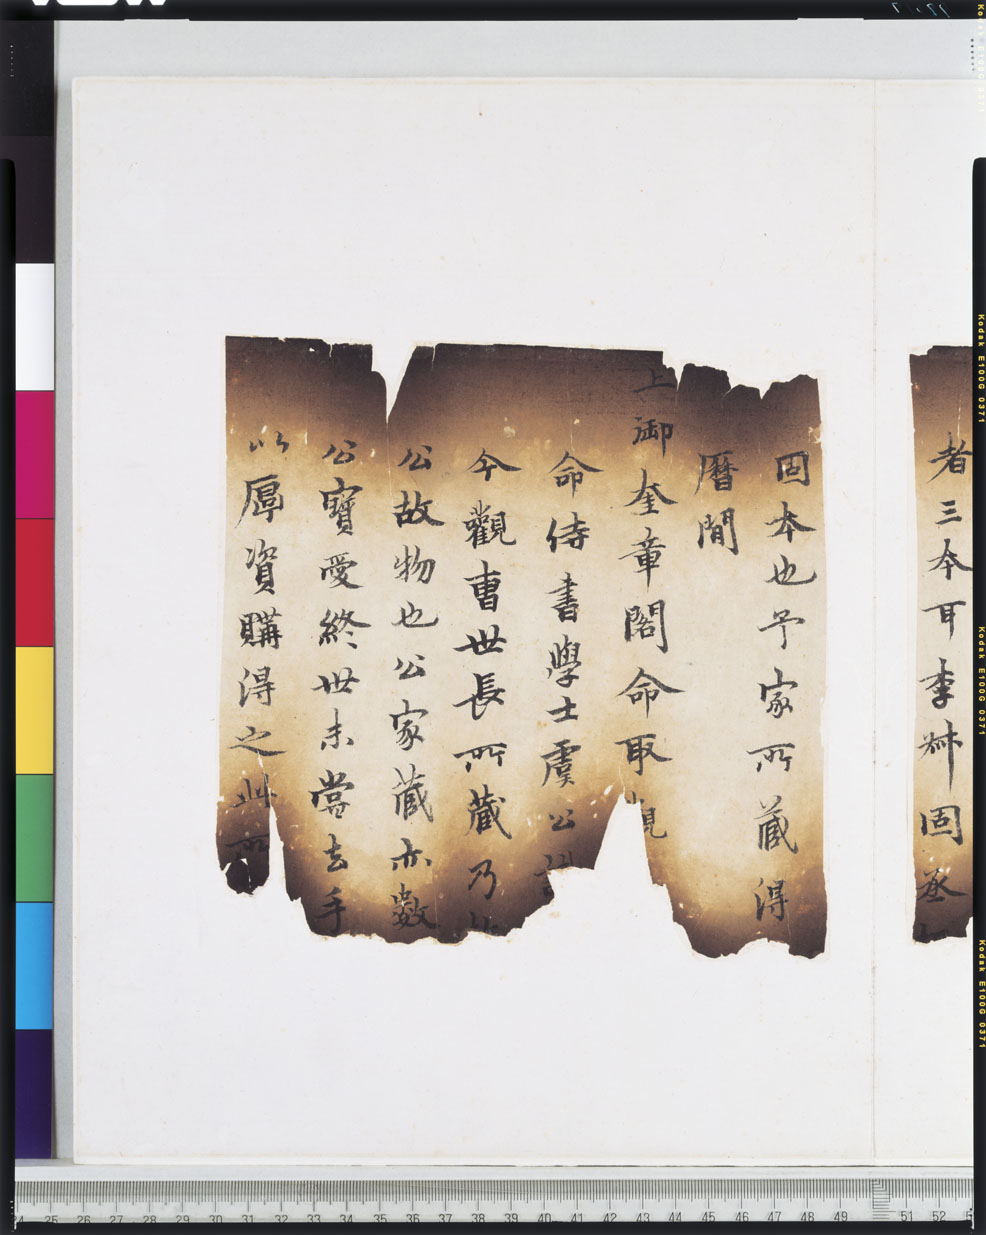 者三本耳李叔固丞
固本也予家所藏得
曆間
上御奎章閣命取觀
命侍書學士虞公
今觀曹世長所藏乃
公故物也公家藏亦數
公寶愛終世未嘗去手
以厚資購得之此所
Kodak E100G 0371
Kodak E100G 0371
Kodak E100G 0371
25 26 27 28 29 30 31 32 33 34 35 36 37 38 39 40 41 42 43 44 45 46 47 48 49 51 52